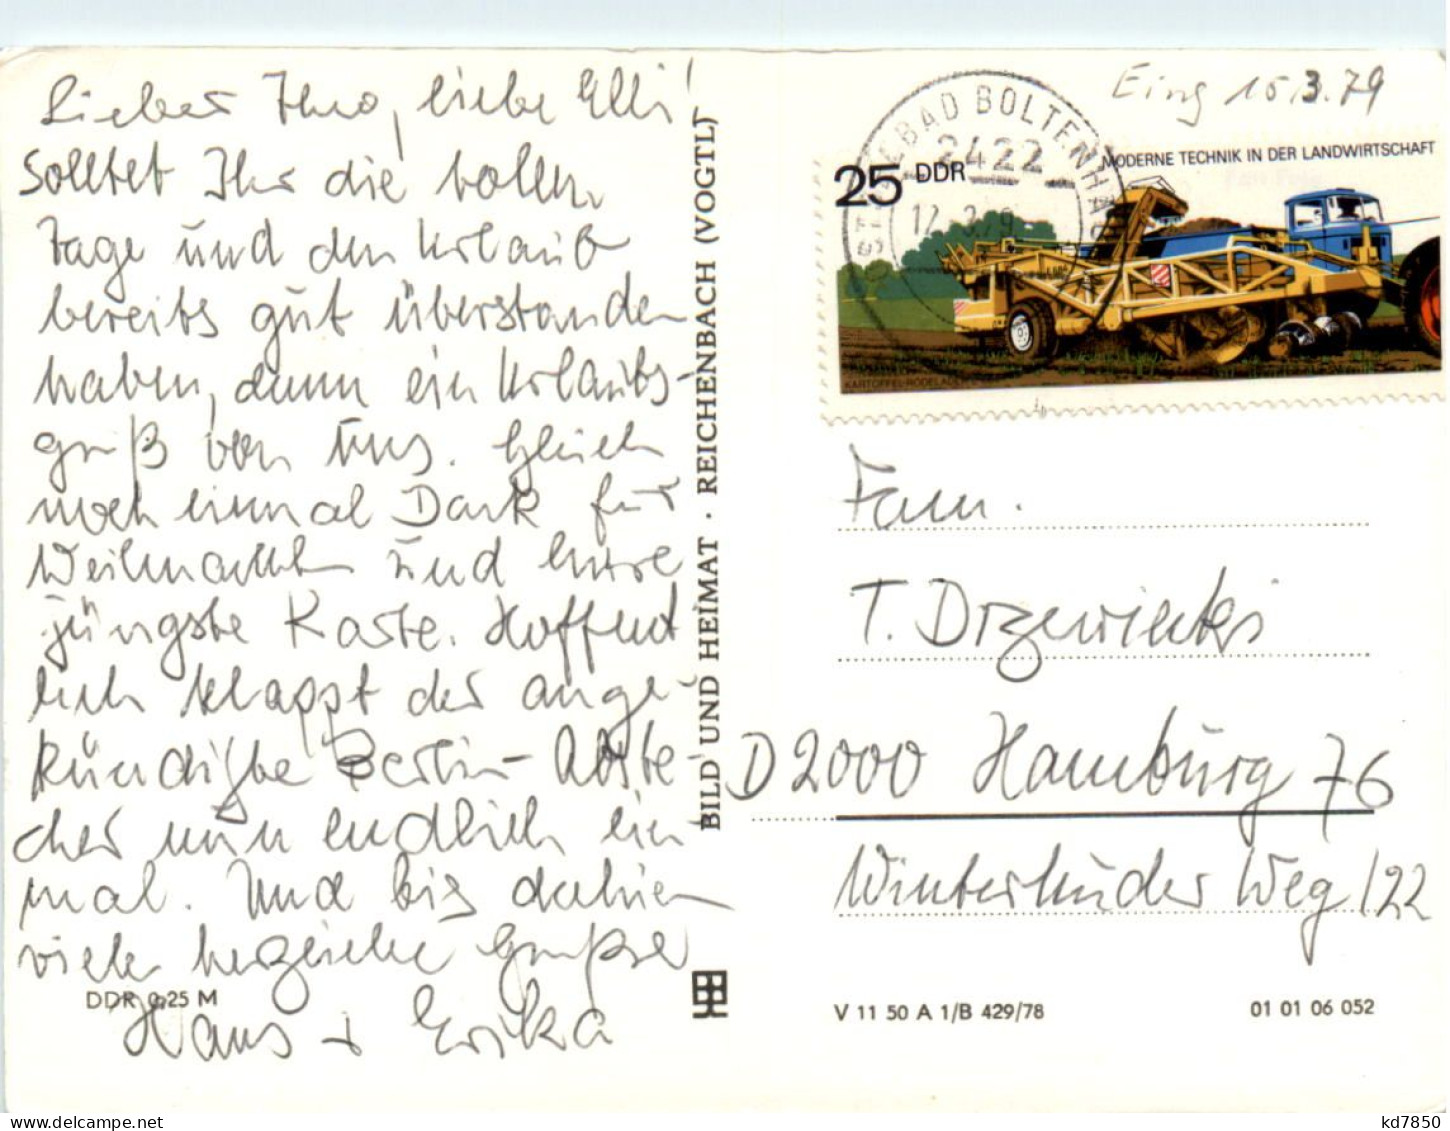 Lieber Theo, liebe Elli!
Solltet Ihr die tollen
Tage und den Urlaub
bereits gut überstanden
haben, dann ein Urlaubs-
gruß von uns. Gleich
noch einmal Dank für
Weihnachten und Eure
jüngste Karte. Hoffent
lich klappt der ange-
kündigte Berlin-Abste-
cher nun endlich ein
mal. Und bis dahin
viele herzliche Grüße
Hans + Erika
DDR 0,25 M
BILD UND HEIMAT · REICHENBACH (VOGTL)
Eing 15.3.79
OSTSEEBAD BOLTENHAGEN
2422
12.3.79
25 DDR
MODERNE TECHNIK IN DER LANDWIRTSCHAFT
Fam.
T. Drzewiecki
D 2000 Hamburg 76
Winterhuder Weg 122
V 11 50 A 1/B 429/78
01 01 06 052
kd7850